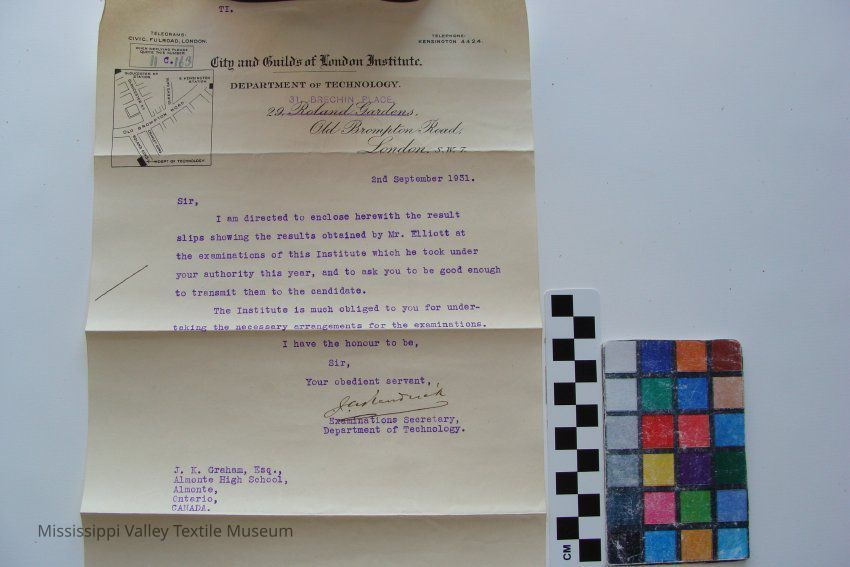 TI.
TELEGRAMS:
CIVIC, FULROAD, LONDON.
TELEPHONE:
KENSINGTON 4424.
WHEN REPLYING PLEASE
QUOTE THIS NUMBER
11 C.163
City and Guilds of London Institute.
DEPARTMENT OF TECHNOLOGY.
31, BRECHIN PLACE,
29, Roland Gardens,
Old Brompton Road,
London, S.W.7.
GLOUCESTER RD STATION
S. KENSINGTON STATION
OLD BROMPTON ROAD
DEPT OF TECHNOLOGY.
2nd September 1931.
Sir,
I am directed to enclose herewith the result
slips showing the results obtained by Mr. Elliott at
the examinations of this Institute which he took under
your authority this year, and to ask you to be good enough
to transmit them to the candidate.
The Institute is much obliged to you for under-
taking the necessary arrangements for the examinations.
I have the honour to be,
Sir,
Your obedient servant,
Examinations Secretary,
Department of Technology.
J. K. Graham, Esq.,
Almonte High School,
Almonte,
Ontario,
CANADA.
Mississippi Valley Textile Museum
CM